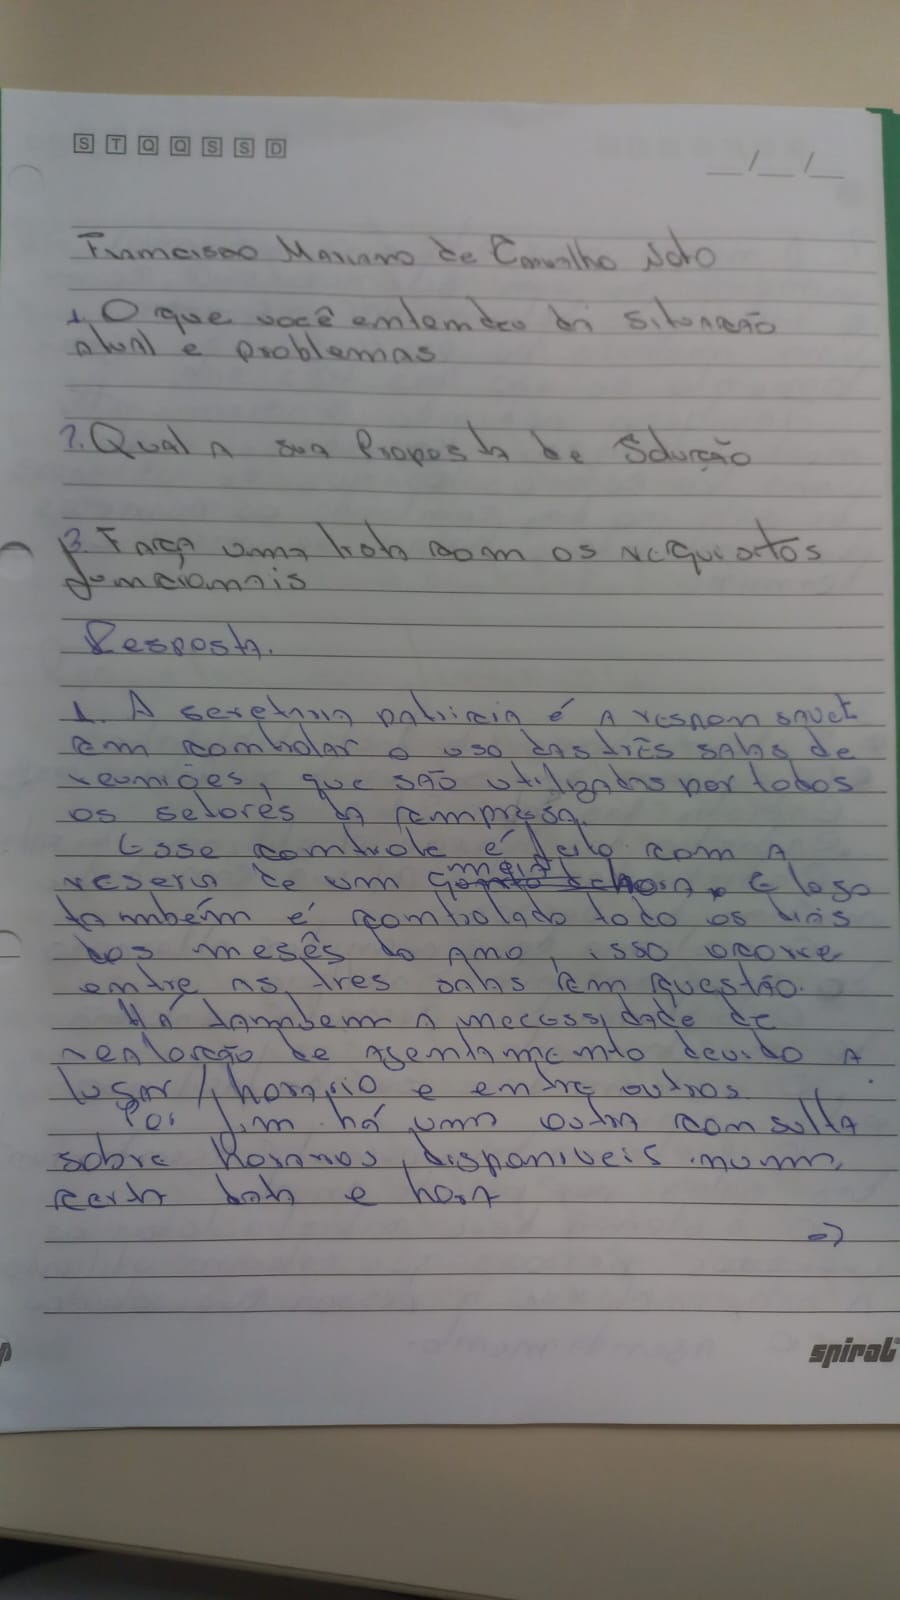 S T Q Q S S D
__/__/__
Francisco Mariano de Carvalho Neto
1. O que você entendeu da situação
atual e problemas
2. Qual a sua Proposta de Solução
3. Faça uma lista com os requisitos
funcionais
Resposta.
1. A seretaria patricia é a responsavel
em controlar o uso das três salas de
reuniões, que são utilizadas por todos
os setores da empresa.
Esse controle é feito com a
reserva de um meia hora. E logo
também é controlado todo os dias
dos mesês do Ano, isso ocorre
entre as tres salas em questão.
Há tambem a necessidade de
realocação de agentamento devido a
lugar / horario e entre outros.
Por fim há uma outra consulta
sobre horarios disponiveis numa
certa data e hora
=>
spiral